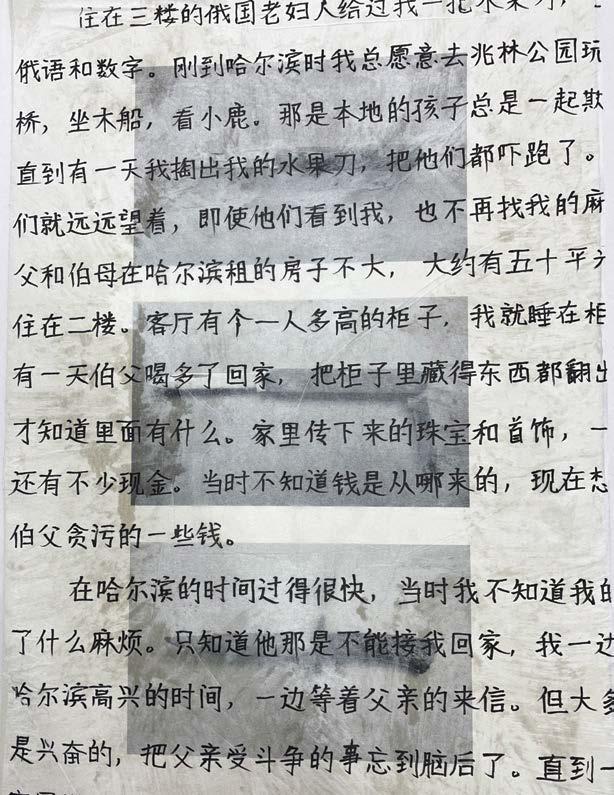 住在三楼的俄国老妇人给过我一把水果刀，
俄语和数字。刚到哈尔滨时我总愿意去兆林公园玩
桥，坐木船，看小鹿。那是本地的孩子总是一起欺
直到有一天我掏出我的水果刀，把他们都吓跑了。
们就远远望着，即使他们看到我，也不再找我的麻
父和伯母在哈尔滨租的房子不大，大约有五十平方
住在二楼。客厅有个一人多高的柜子，我就睡在柜
有一天伯父喝多了回家，把柜子里藏得东西都翻出
才知道里面有什么。家里传下来的珠宝和首饰，一
还有不少现金。当时不知道钱是从哪来的，现在想
伯父贪污的一些钱。
在哈尔滨的时间过得很快，当时我不知道我的
了什么麻烦。只知道他那是不能接我回家，我一边
哈尔滨高兴的时间，一边等着父亲的来信。但大多
是兴奋的，把父亲受斗争的事忘到脑后了。直到一